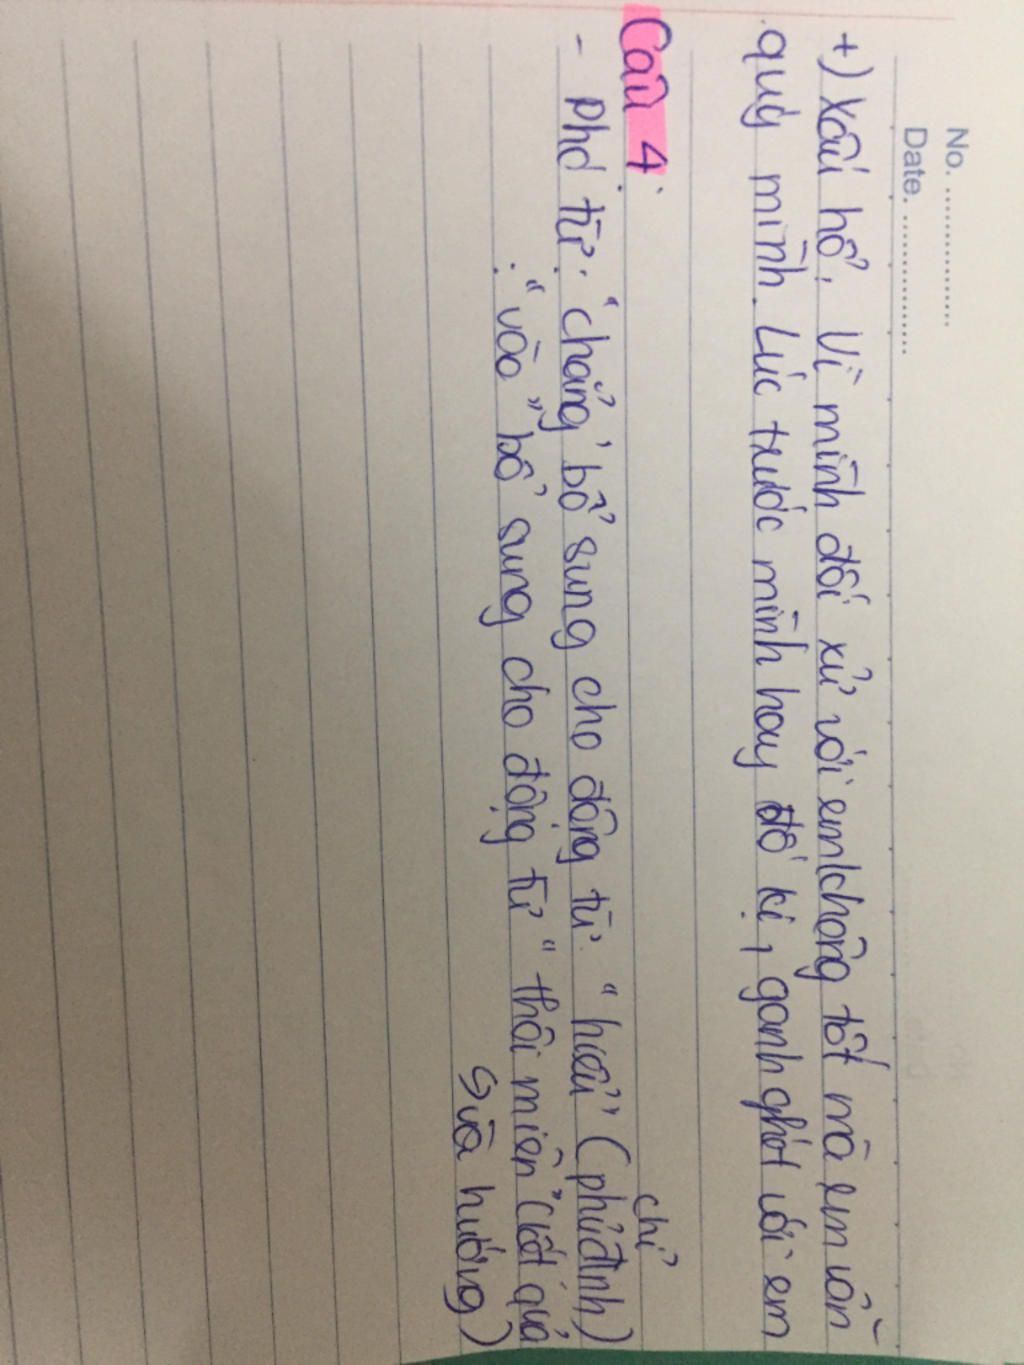 No. ................
Date. ................
+) Xấu hổ, Vì mình đối xử với em không tốt mà em vẫn
quý mình. Lúc trước mình hay đố kị, ganh ghét với em
Câu 4:
chỉ
- Phó từ: "chẳng" bổ sung cho động từ: "hiểu" (phủ định)
: "vào" bổ sung cho động từ "thôi miên" (kết quả
và hướng)